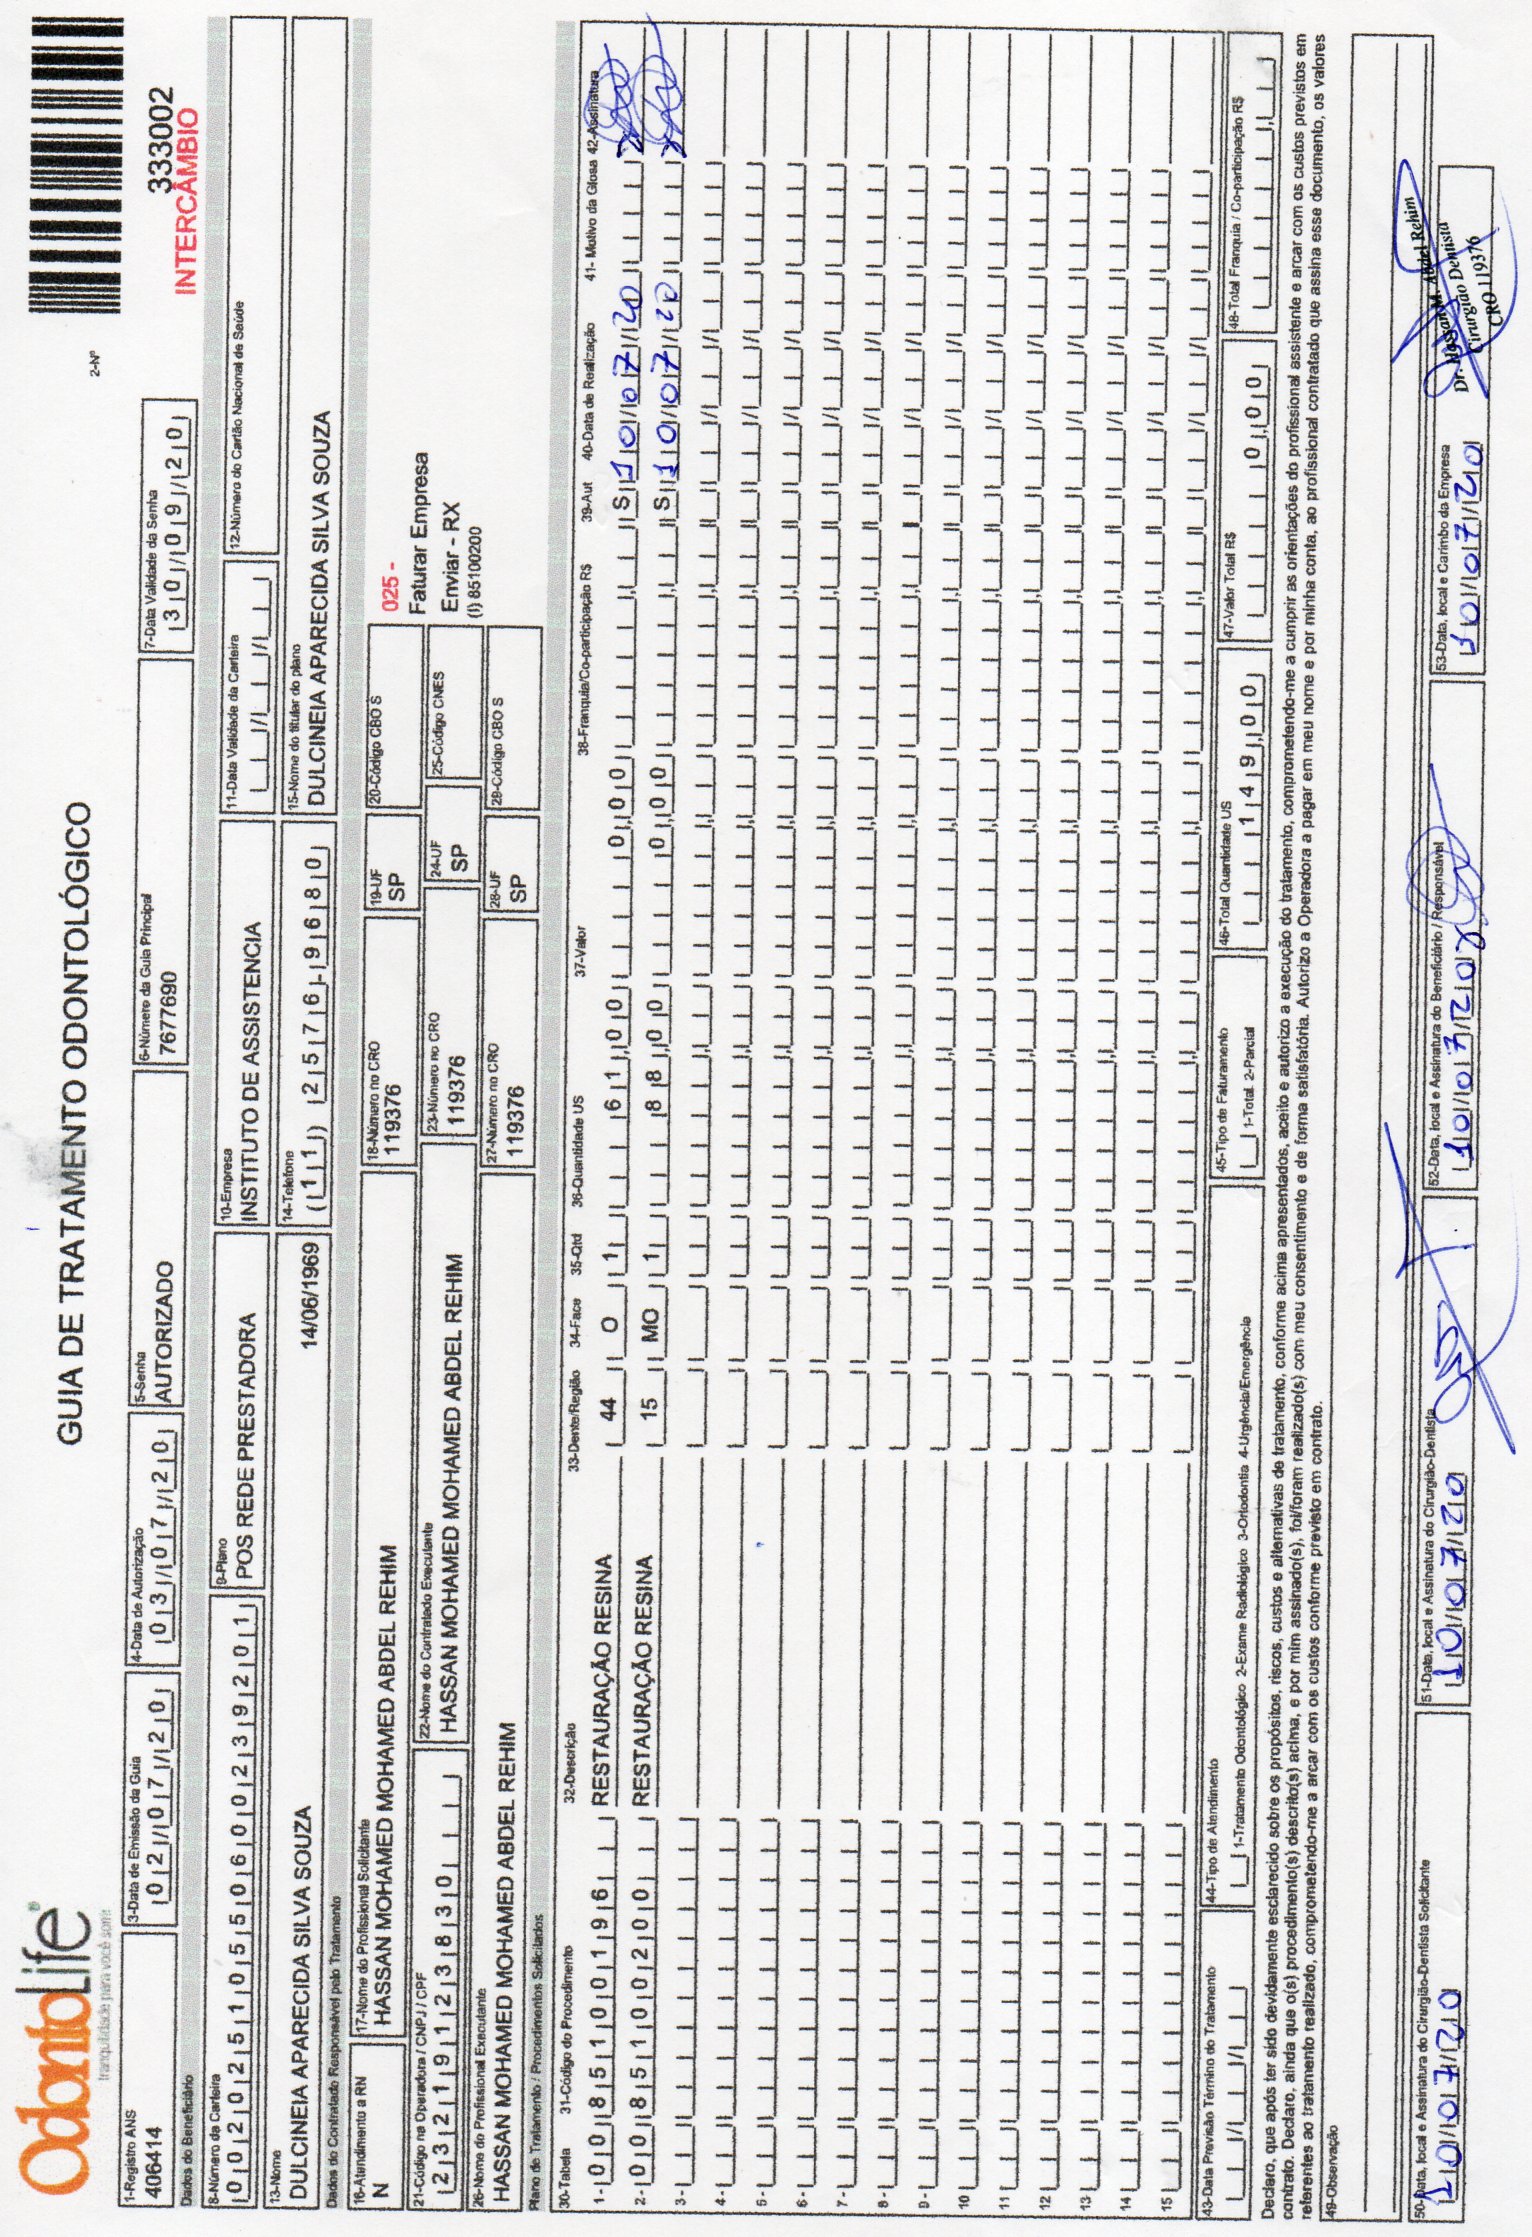 OdontoLife®
tranquilidade para você sorrir
GUIA DE TRATAMENTO ODONTOLÓGICO
2-Nº
333002
INTERCÂMBIO
1-Registro ANS
406414
3-Data de Emissão da Guia
02/07/20
4-Data de Autorização
03/07/20
5-Senha
AUTORIZADO
6-Número da Guia Principal
7677690
7-Data Validade da Senha
30/09/20
Dados do Beneficiário
8-Número da Carteira
00202510550600239201
9-Plano
POS REDE PRESTADORA
10-Empresa
INSTITUTO DE ASSISTENCIA
11-Data Validade da Carteira
12-Número do Cartão Nacional de Saúde
13-Nome
DULCINEIA APARECIDA SILVA SOUZA
14/06/1969
14-Telefone
(11) 2576-9680
15-Nome do titular do plano
DULCINEIA APARECIDA SILVA SOUZA
Dados do Contratado Responsável pelo Tratamento
16-Atendimento a RN
N
17-Nome do Profissional Solicitante
HASSAN MOHAMED MOHAMED ABDEL REHIM
18-Número no CRO
119376
19-UF
SP
20-Código CBO S
025 -
Faturar Empresa
Enviar - RX
(I) 85100200
21-Código na Operadora / CNPJ / CPF
23219123830
22-Nome do Contratado Executante
HASSAN MOHAMED MOHAMED ABDEL REHIM
23-Número no CRO
119376
24-UF
SP
25-Código CNES
26-Nome do Profissional Executante
HASSAN MOHAMED MOHAMED ABDEL REHIM
27-Número no CRO
119376
28-UF
SP
29-Código CBO S
Plano de Tratamento / Procedimentos Solicitados
30-Tabela 31-Código do Procedimento 32-Descrição 33-Dente/Região 34-Face 35-Qtd 36-Quantidade US 37-Valor 38-Franquia/Co-participação R$ 39-Aut 40-Data de Realização 41- Motivo da Glosa 42-Assinatura
1- 00 85100196 RESTAURAÇÃO RESINA 44 O 1 61,00 0,00 S 10/07/20
2- 00 85100200 RESTAURAÇÃO RESINA 15 MO 1 88,00 0,00 S 10/07/20
3 -
4 -
5 -
6 -
7 -
8 -
9 -
10
11
12
13
14
15
43-Data Previsão Término do Tratamento
44-Tipo de Atendimento
1-Tratamento Odontológico 2-Exame Radiológico 3-Ortodontia 4-Urgência/Emergência
45-Tipo de Faturamento
1-Total 2-Parcial
46-Total Quantidade US
149,00
47-Valor Total R$
0,00
48-Total Franquia / Co-participação R$
Declaro, que após ter sido devidamente esclarecido sobre os propósitos, riscos, custos e alternativas de tratamento, conforme acima apresentados, aceito e autorizo a execução do tratamento, comprometendo-me a cumprir as orientações do profissional assistente e arcar com os custos previstos em
contrato. Declaro, ainda que o(s) procedimento(s) descrito(s) acima, e por mim assinado(s), foi/foram realizado(s) com meu consentimento e de forma satisfatória. Autorizo a Operadora a pagar em meu nome e por minha conta, ao profissional contratado que assina esse documento, os valores
referentes ao tratamento realizado, comprometendo-me a arcar com os custos conforme previsto em contrato.
49-Observação
50-Data, local e Assinatura do Cirurgião-Dentista Solicitante
10/07/20
51-Data, local e Assinatura do Cirurgião-Dentista
10/07/20
52-Data, local e Assinatura do Beneficiário / Responsável
10/07/20
53-Data, local e Carimbo da Empresa
10/07/20
Dr. Hassan M. Abdel Rehim
Cirurgião Dentista
CRO 119376